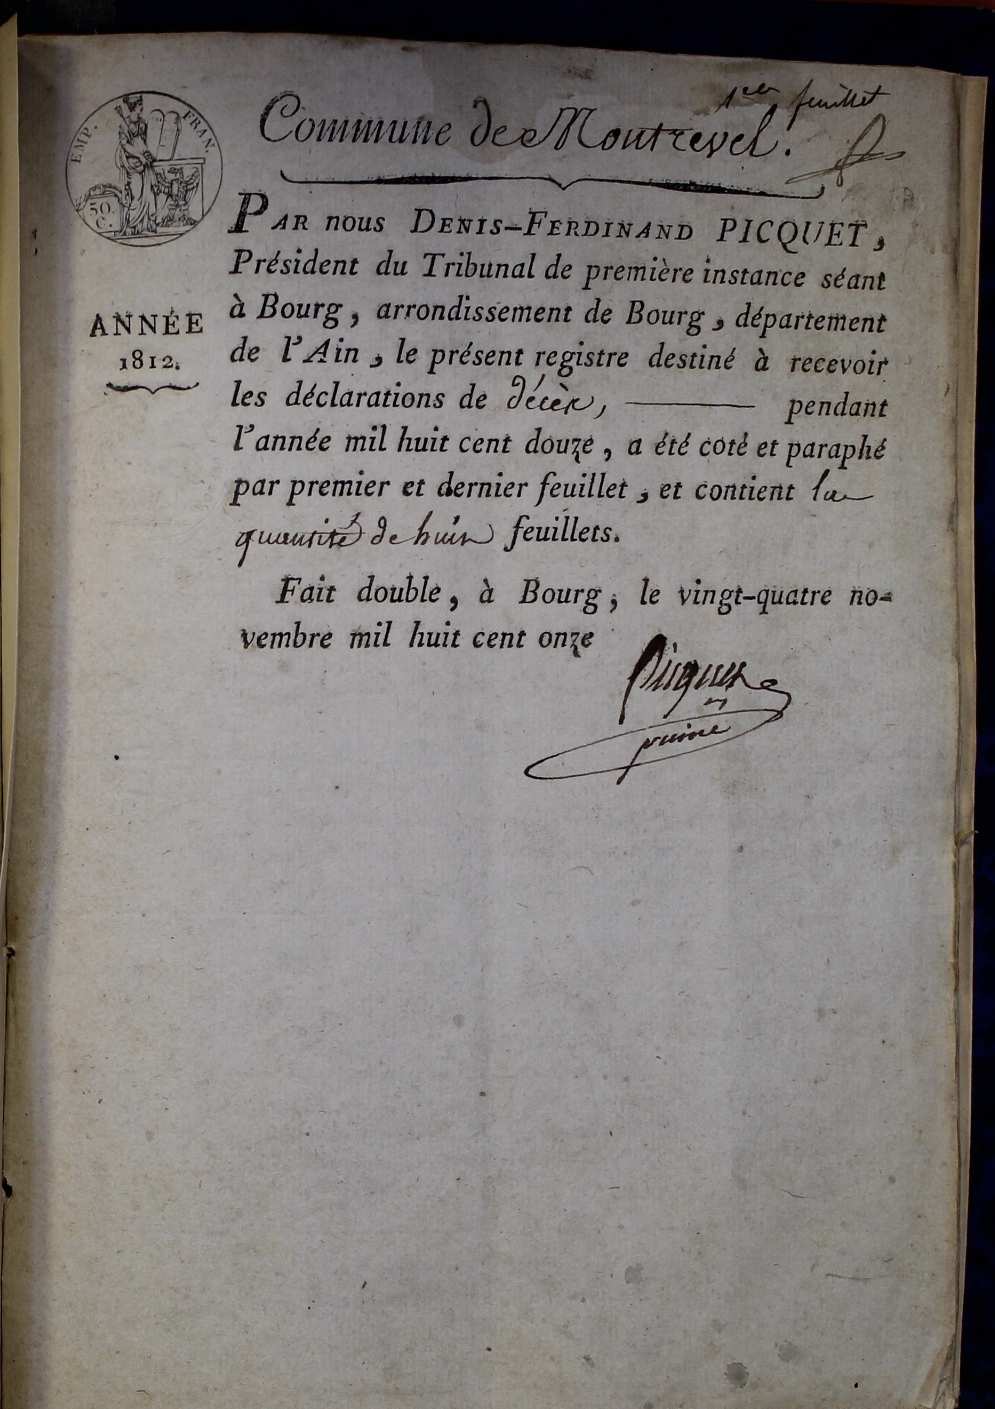 1er feuillet
EMP. FRAN.
50
C.
Commune de Montrevel.
PAR nous DENIS-FERDINAND PICQUET,
Président du Tribunal de première instance séant
à Bourg, arrondissement de Bourg, département
de l'Ain, le présent registre destiné à recevoir
les déclarations de décès, ——— pendant
l'année mil huit cent douze, a été coté et paraphé
par premier et dernier feuillet, et contient la
quantité de huit feuillets.
ANNÉE
1812.
Fait double, à Bourg, le vingt-quatre no-
vembre mil huit cent onze
Picquet